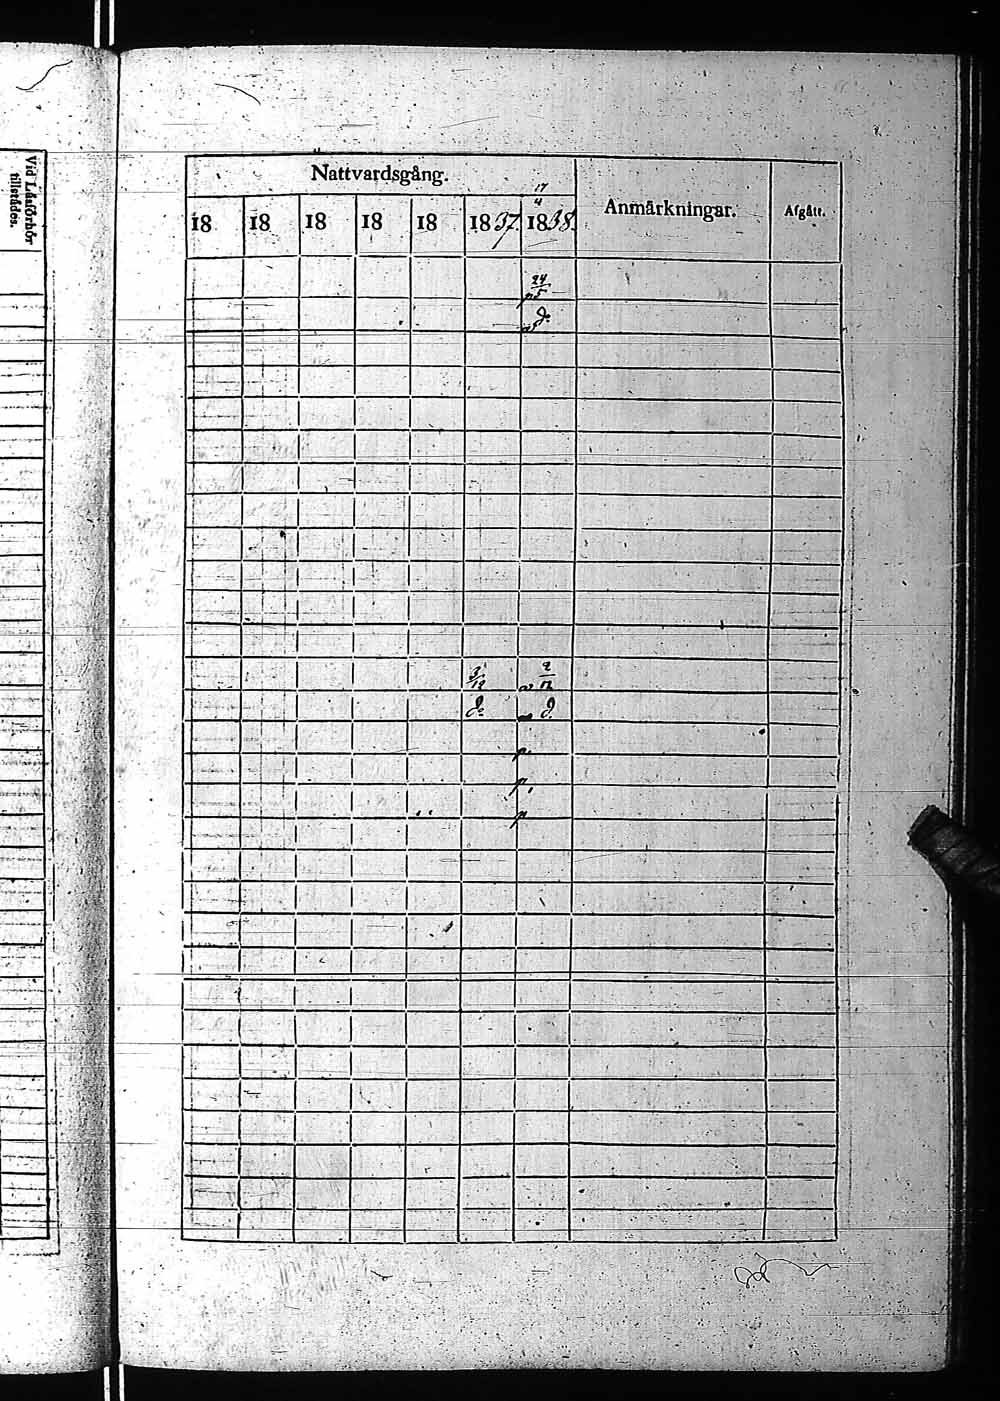 Vid Läsförhör
tillstädes.
Nattvardsgång.
Anmärkningar.
Afgått.
17/4
18 18 18 18 18 1837. 1838.
p 24/5
d:o
2/12
d:o d:o
p
p
p